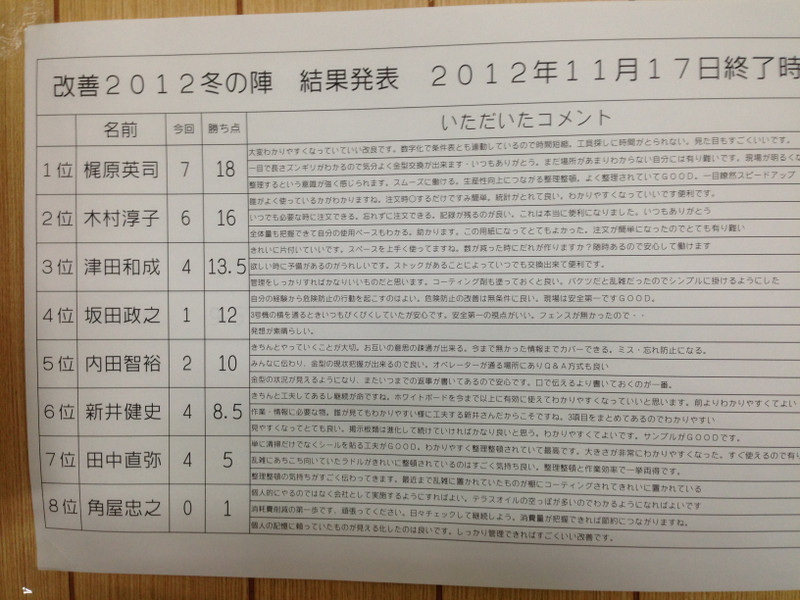 改善2012冬の陣　結果発表　2012年11月17日終了時
名前 今回 勝ち点 いただいたコメント
大変わかりやすくなっていていい改良です。数字化で条件表とも連動しているので時間短縮。工具探しに時間がとられない。見た目もすごくいいです。
1位 梶原英司 7 18 一目で長さズンギリがわかるので気分よく金型交換が出来ます・いつもありがとう。まだ場所があまりわからない自分には有り難いです。現場が明るくな
整理するという意識が強く感じられます。スムーズに働ける、生産性向上につながる整理整頓。よく整理されていてGOOD。一目瞭然スピードアップ
誰がよく使っているかがわかりますね。注文時○するだけですみ簡単。統計がとれて良い。わかりやすくなっていいです便利です。
2位 木村淳子 6 16 いつでも必要な時に注文できる。忘れずに注文できる。記録が残るのが良い。これは本当に便利になりました。いつもありがとう
全体量も把握できて自分の使用ペースもわかる。助かります。この用紙になってとてもよかった。注文が簡単になったのでとても有り難い
きれいに片付いていいです。スペースを上手く使ってますね。数が減った時にだれが作りますか？随時あるので安心して働けます
3位 津田和成 4 13.5 欲しい時に予備があるのがうれしいです。ストックがあることによっていつでも交換出来て便利です。
管理をしっかりすればかなりいいものだと思います。コーティング剤も塗っておくと良い。バケツだと乱雑だったのでシンプルに掛けるようにした
自分の経験から危険防止の行動を起こすのはよい。危険防止の改善は無条件に良い。現場は安全第一ですGOOD。
4位 坂田政之 1 12 3号機の横を通るときいつもびくびくしていたが安心です。安全第一の視点がいい。フェンスが無かったので・・
発想が素晴らしい。
きちんとやっていくことが大切。お互いの意思の疎通が出来る。今まで無かった情報までカバーできる。ミス・忘れ防止になる。
5位 内田智裕 2 10 みんなに伝わり、金型の現状把握が出来るので良い。オペレーターが通る場所にありQ&A方式も良い
金型の状況が見えるようになり、またいつまでの返事が書いてあるので安心です。口で伝えるより書いておくのが一番。
きちんと工夫してあるし継続が命ですね。ホワイトボードを今まで以上に有効に使えてわかりやすくなっていいと思います。前よりわかりやすくてよい
6位 新井健史 4 8.5 作業・情報に必要な物。誰が見てもわかりやすい様に工夫する新井さんだからこそですね。3項目をまとめてあるのでわかりやすい
見やすくなってとても良い。掲示板類は進化して続けていければかなり良いと思う。わかりやすくてよいです。サンプルがGOODです。
単に清掃だけでなくシールを貼る工夫がGOOD。わかりやすく整理整頓されていて最高です。大きさが非常にわかりやすくなった。すぐ使えるので有り
7位 田中直弥 4 5 乱雑にあちこち向いていたラドルがきれいに整頓されているのはすごく気持ち良い。整理整頓と作業効率で一挙両得です。
整理整頓の気持ちがすごく伝わってきます。最近まで乱雑に置かれていたものが棚にコーティングされてきれいに置かれている
個人的にやるのではなく会社として実施するようにすればよい。テラスオイルの空っぽが多いのでわかるようになればよいです
8位 角屋忠之 0 1 消耗費削減の第一歩です、頑張ってください。日々チェックして継続しよう。消費量が把握できれば節約につながりますね。
個人の記憶に頼っていたものが見える化したのは良いです。しっかり管理できればすごくいい改善です。